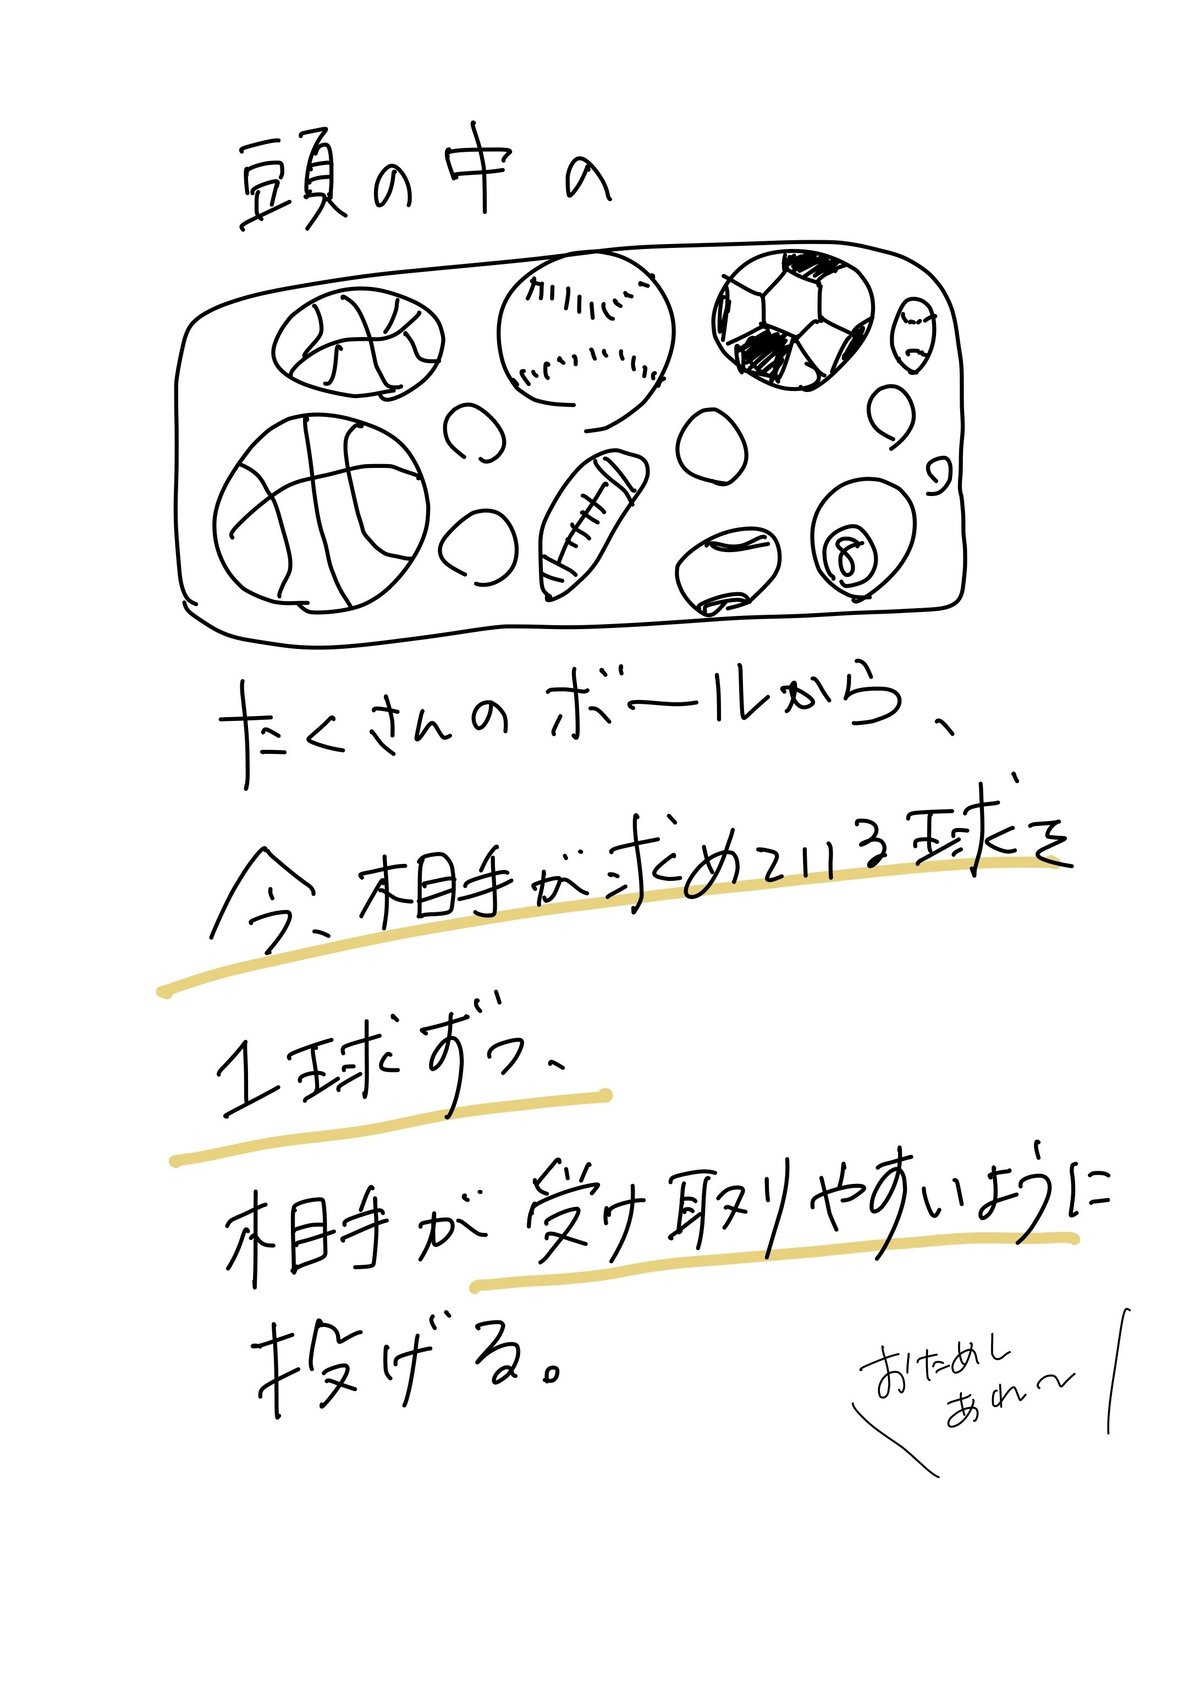 頭の中の
8
たくさんのボールから、
今、相手が求めている球を
1球ずつ、
相手が受け取りやすいように
投げる。
おためし
あれ〜